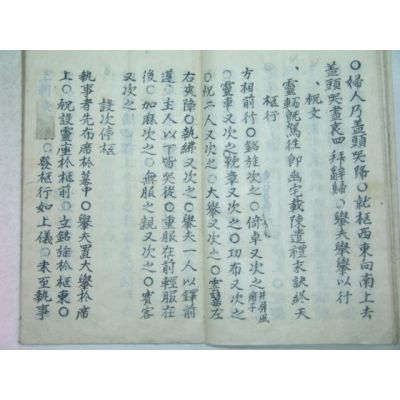 ○婦人乃盖頭哭歸○就柩西東向南上去
盖頭哭盡哀四拜辭歸○擧夫擧轝以行
、祝文
、靈輀旣駕往卽幽宅載陳遣禮永訣終天
柩行
方相前行○銘旌次之○倚車又次之井屛風
○靈車又次之○輓章又次之○功布又次之
○祝二人又次之○大擧又次之○雲翣左
右夾障○執紼又次之○擧夫一人以鐸前
遵○主人以下皆哭從○重服在前輕服在
後○加麻次之○無服之親又次之○賓客
又次之
設次停柩
執事者先布席於幕中○擧夫置大擧於席
上○祝設靈座於柩前○立銘旌於柩東○
○發柩行如上儀○未至執事